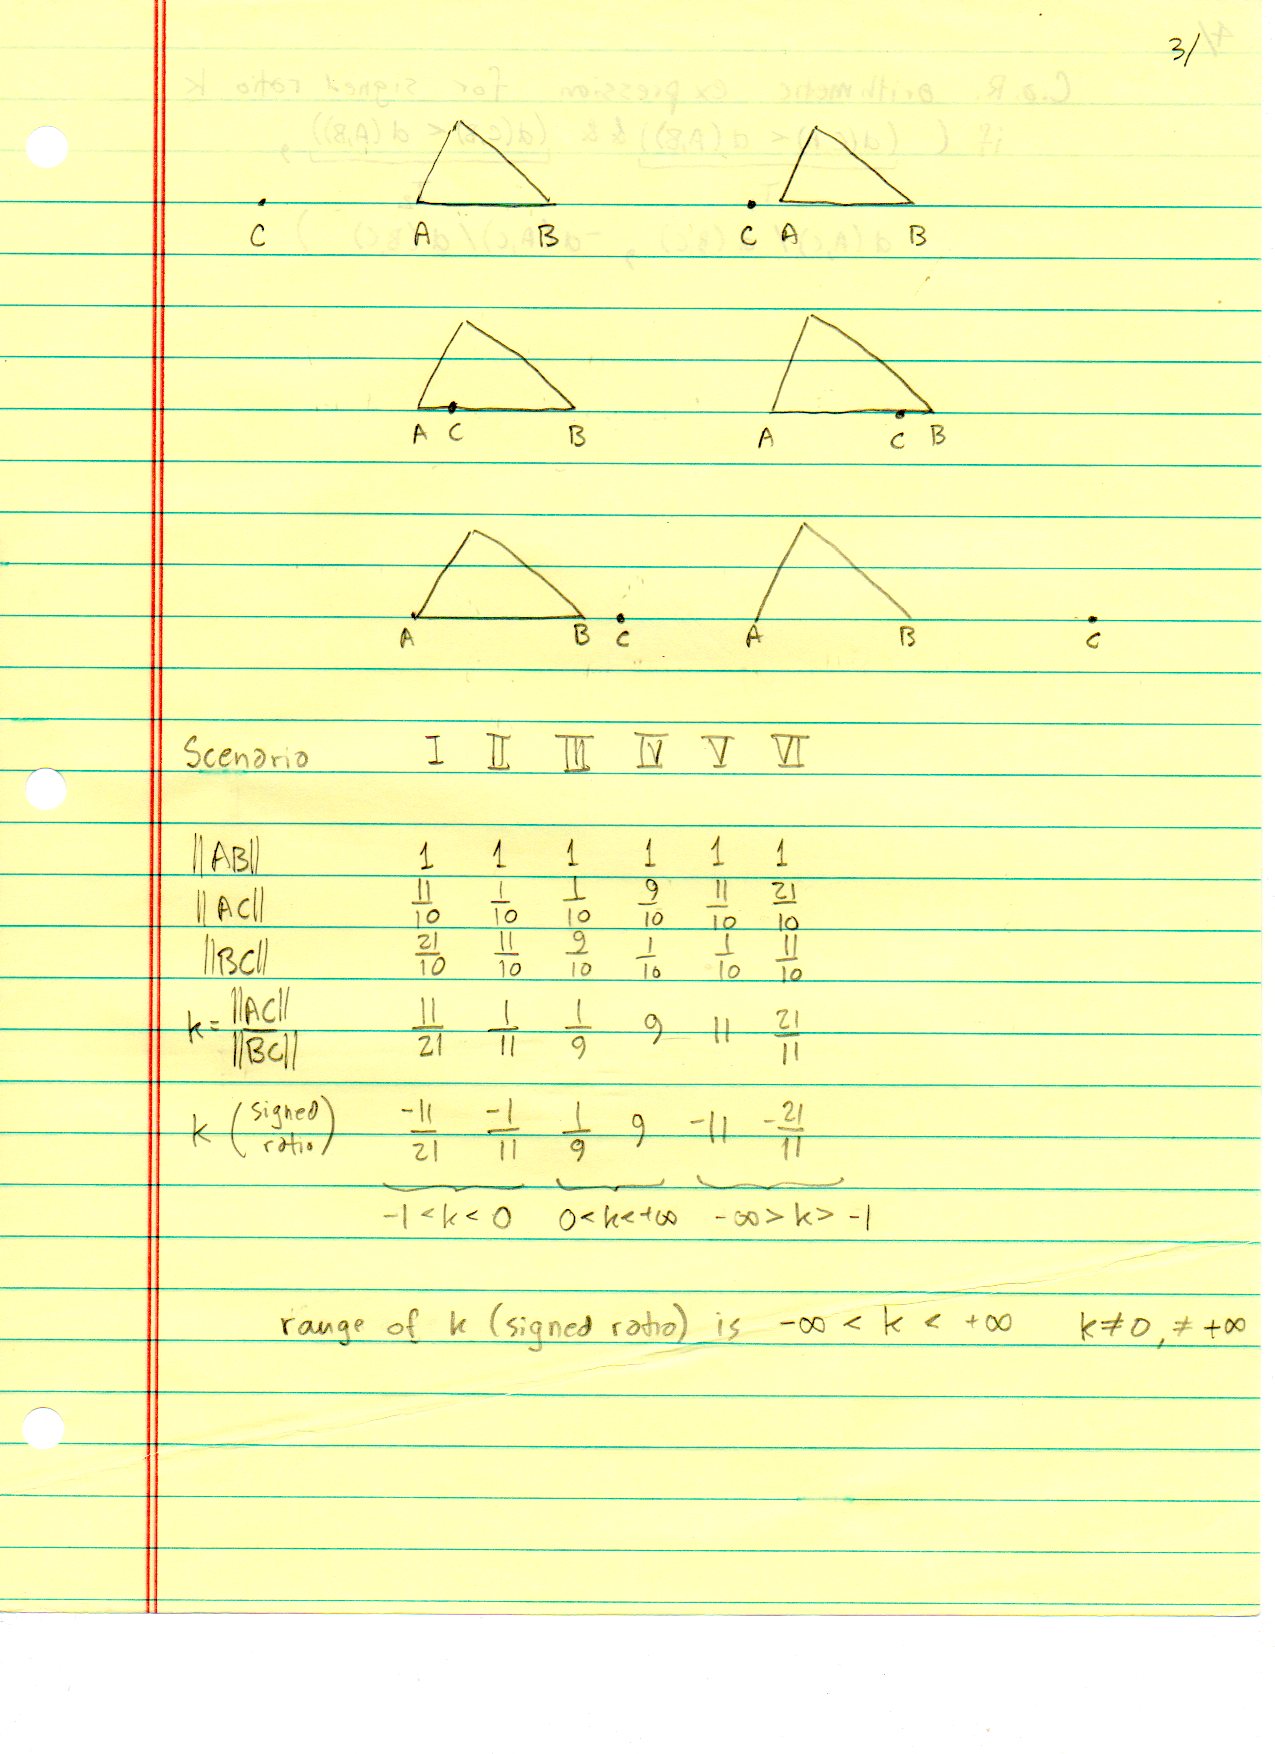 3/
C A B C A B
A C B A C B
A B C A B C
Scenario I II III IV V VI
||AB|| 1 1 1 1 1 1
||AC|| 11/10 1/10 1/10 9/10 11/10 21/10
||BC|| 21/10 11/10 9/10 1/10 1/10 11/10
k = ||AC||/||BC|| 11/21 1/11 1/9 9 11 21/11
k (signed ratio) -11/21 -1/11 1/9 9 -11 -21/11
-1 < k < 0 0 < k < +∞ -∞ > k > -1
range of k (signed ratio) is -∞ < k < +∞ k ≠ 0, ≠ +∞